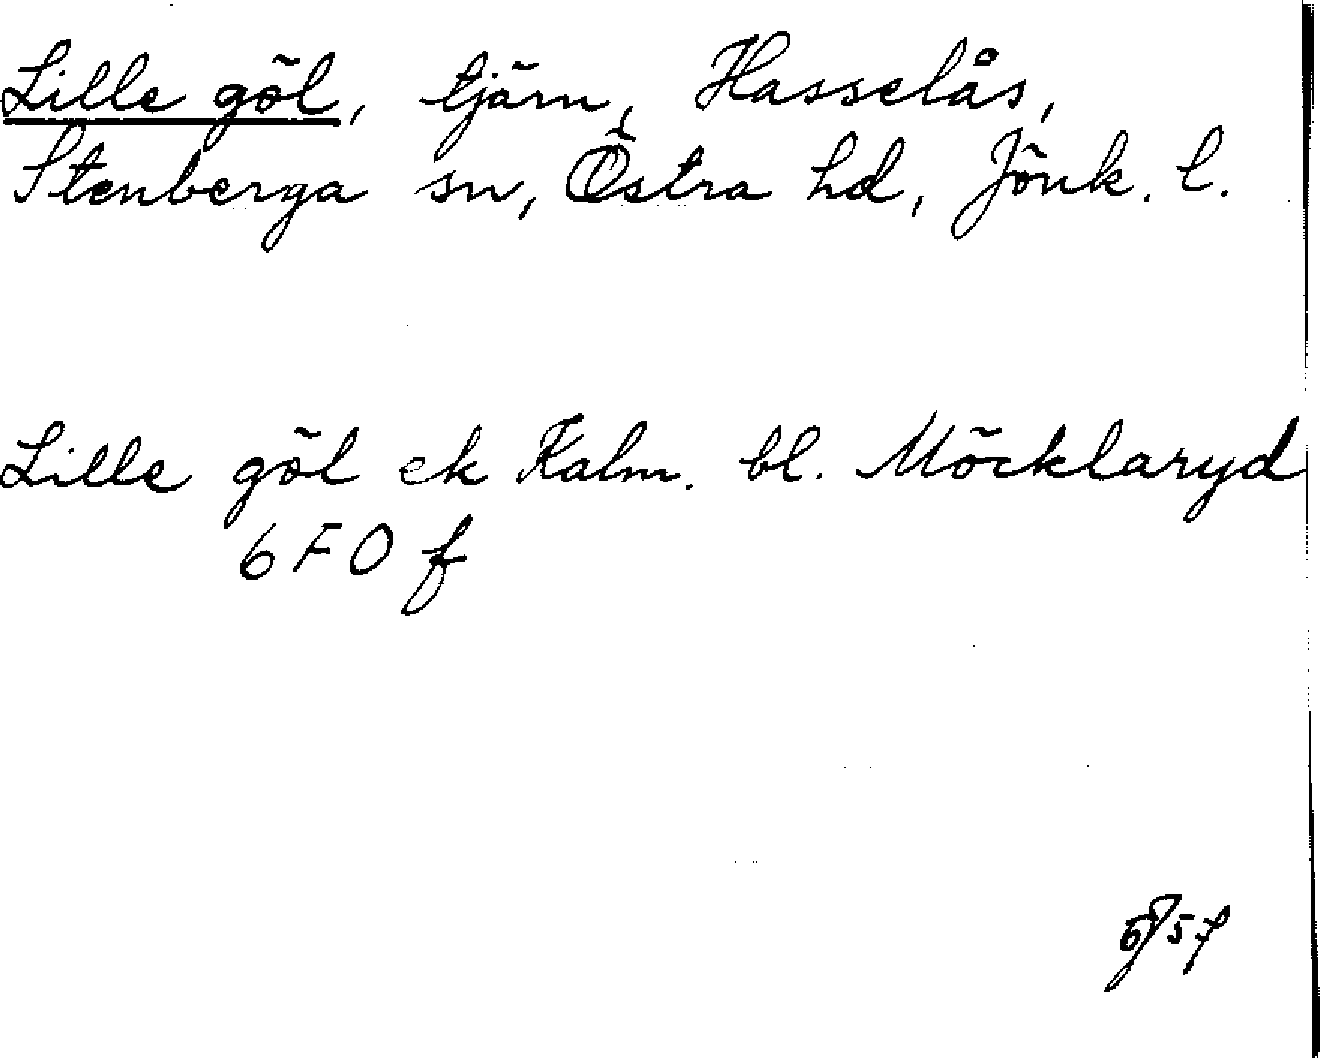 Lille göl, tjärn, Hasselås,
Stenberga sn, Östra hd, Jönk. l.
Lille göl ek Kalm. bl. Möcklaryd
6 F 0 f